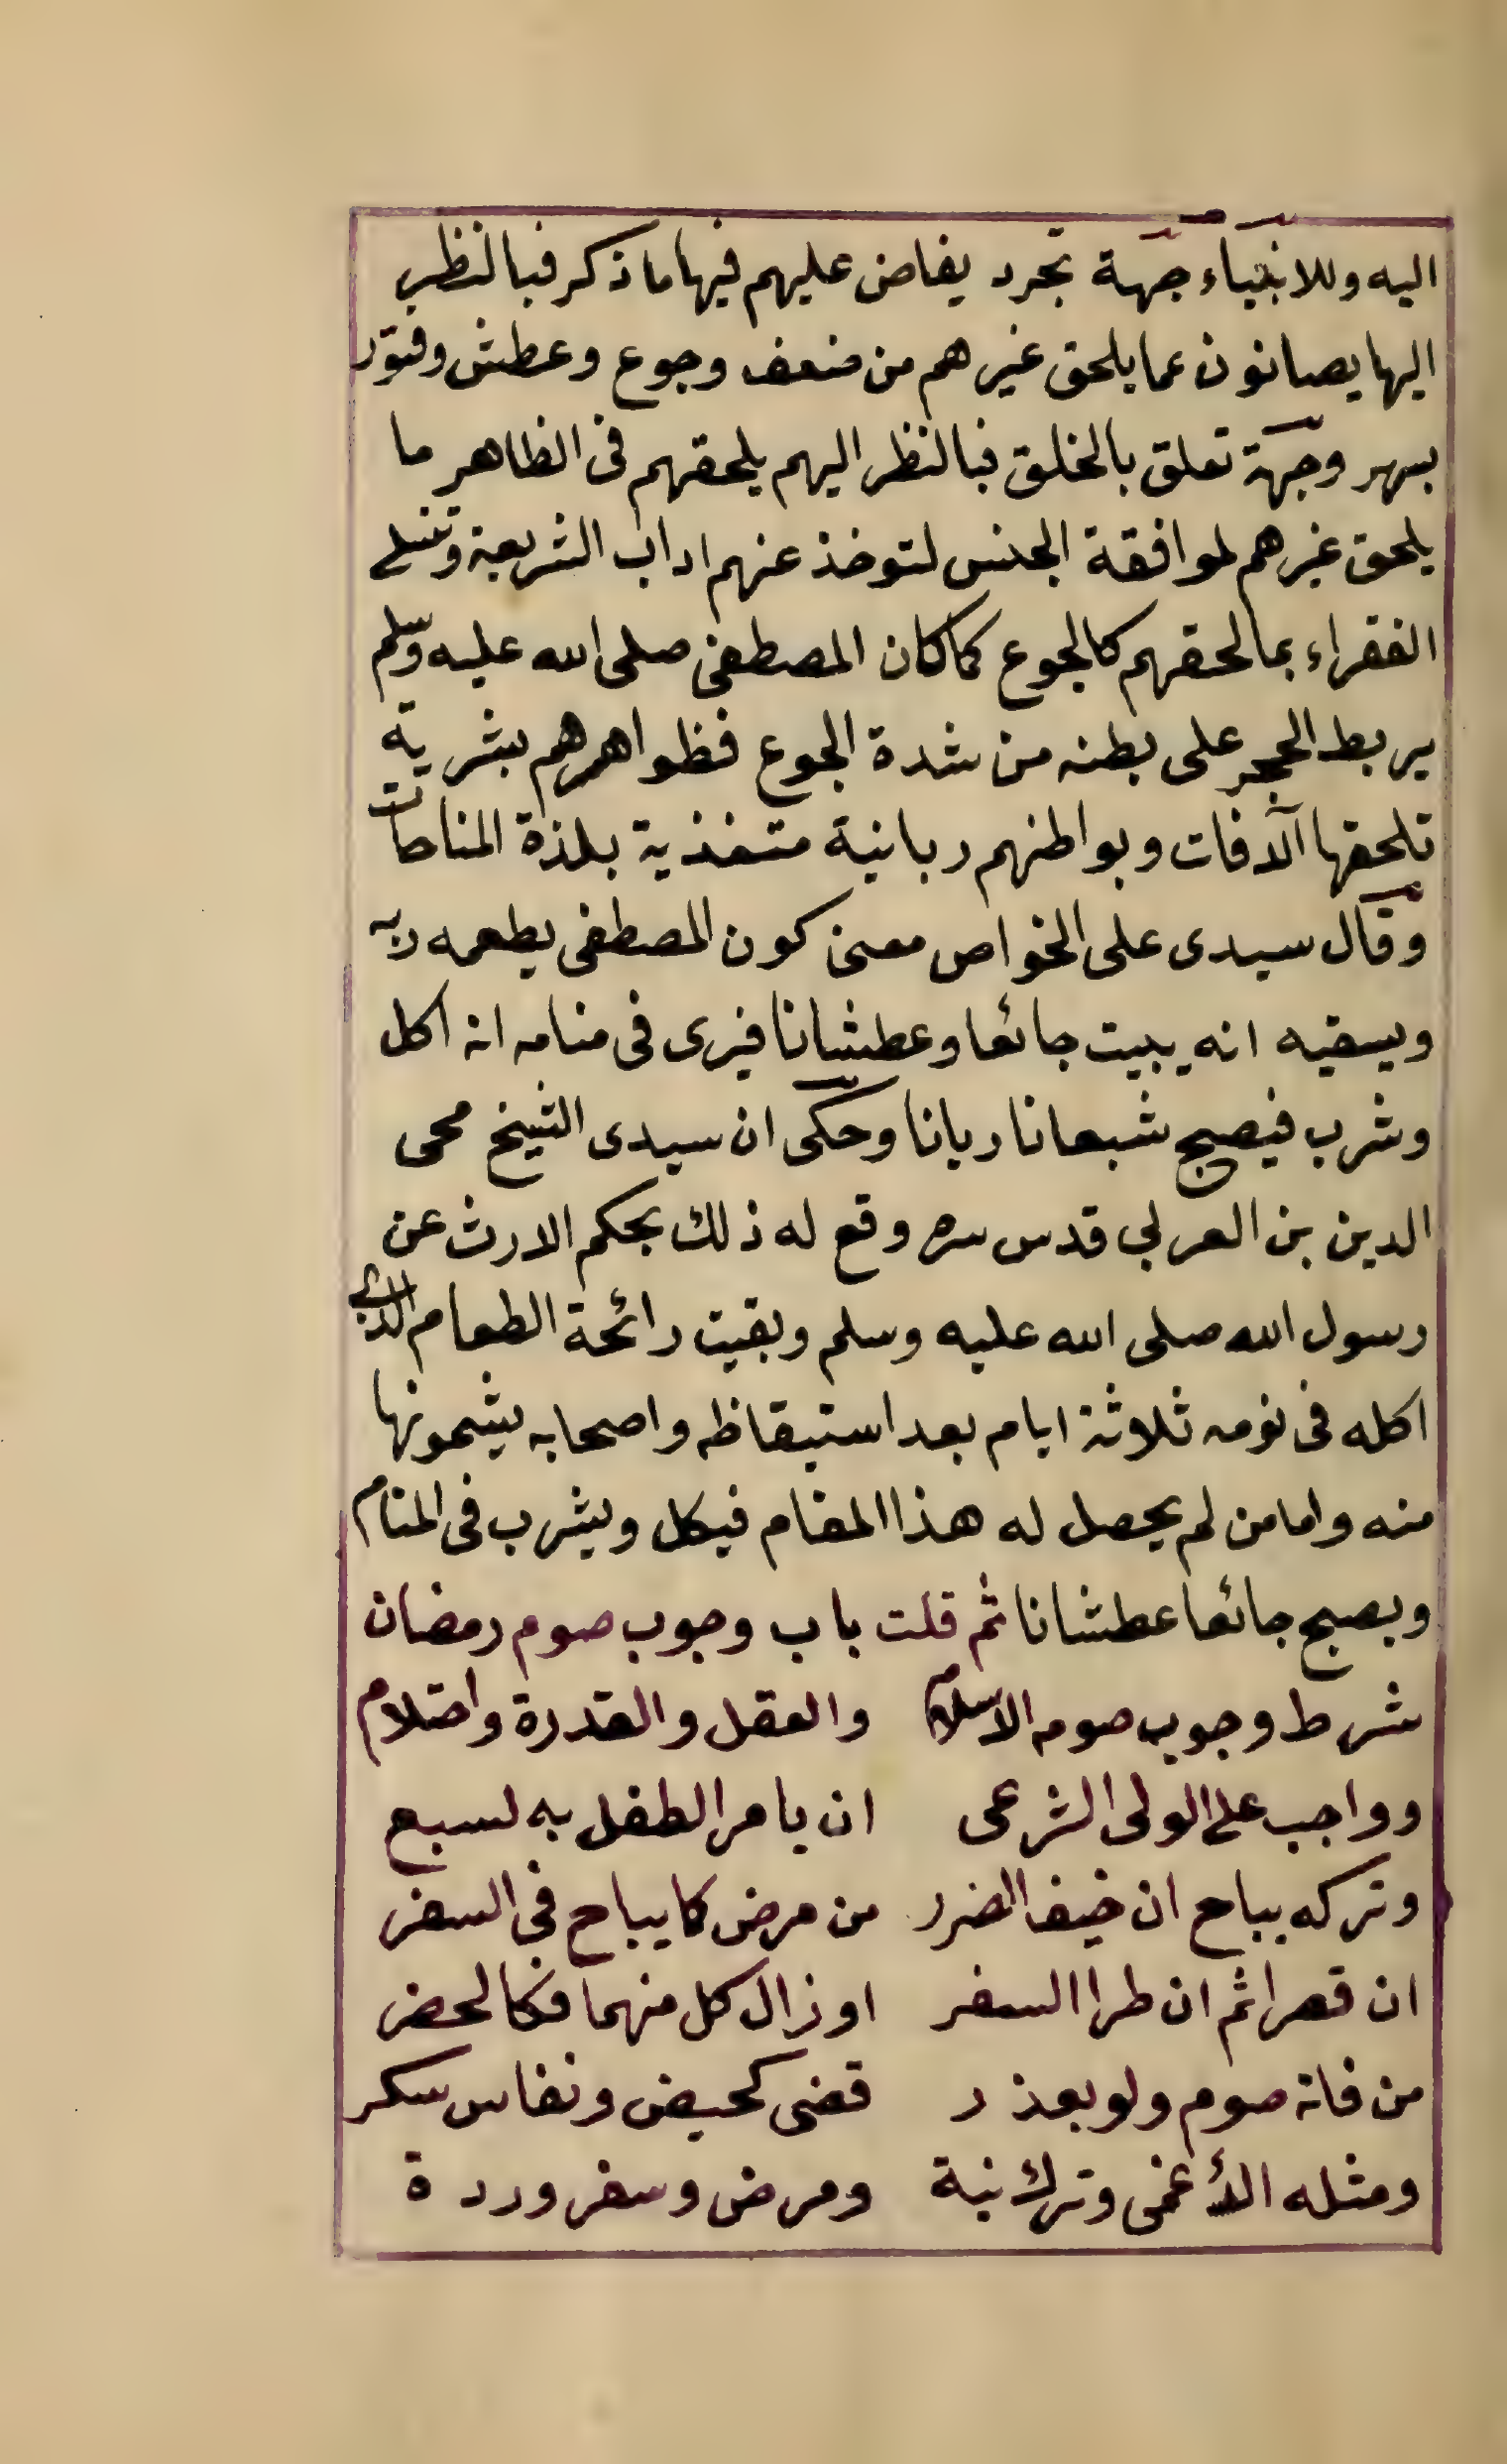 اليه وللانبياء جهة تجرد يفاض عليهم فيها ما ذكر فبالنظر
اليها يصانون عما يلحق غيرهم من ضعف وجوع وعطش وفتور
بسهر وجهة تعلق بالخلق فبالنظر اليهم يلحقهم فى الظاهر ما
يلحق غيرهم لموافقة الجنس لتوخذ عنهم اداب الشريعة وتتسلى
الفقراء بما لحقهم كالجوع كما كان المصطفى صلى الله عليه وسلم
يربط الحجر على بطنه من شدة الجوع فظواهرهم بشرية
تلحقها الآفات وبواطنهم ربانية متغذية بلذة المناجات
وقال سيدى على الخواص معنى كون المصطفى يطعمه ربه
ويسقيه انه يبيت جائعا وعطشانا فيرى فى منامه انه اكل
وشرب فيصبح شبعانا ريانا وحكى ان سيدى الشيخ محى
الدين بن العربي قدس سره وقع له ذلك بحكم الارث عن
رسول الله صلى الله عليه وسلم وبقيت رائحة الطعام الذى
اكله فى نومه ثلاثة ايام بعد استيقاظه واصحابه يشمونها
منه واما من لم يحصل له هذا المقام فيكل ويشرب فى المنام
ويصبح جائعا عطشانا ثم قلت باب وجوب صوم رمضان
شرط وجوب صومه الاسلام والعقل والقدرة واحتلام
وواجب على الولى الشرعى ان يامر الطفل به لسبع
وتركه يباح ان خيف الضرر من مرض كما يباح في السفر
ان قصرا ثم ان طرا السفر او زال كل منهما فكالحضر
من فاته صوم ولو بعذر قضى كحيض ونفاس سكر
ومثله الأغمى وترك نية ومرض وسفر وردة